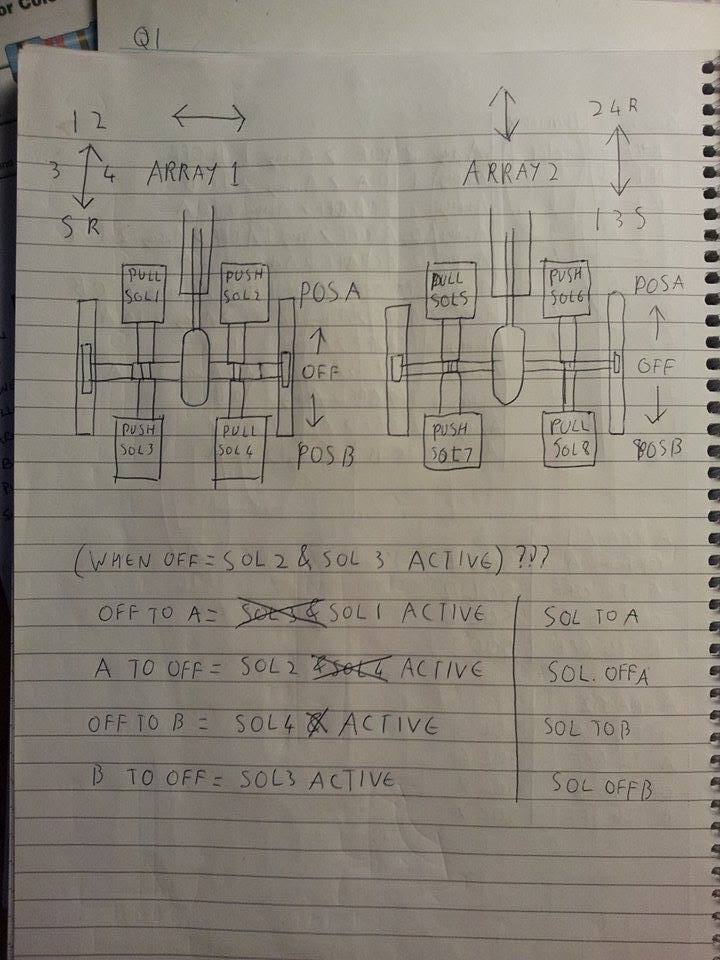 or Colo
Q1
1 2
3 4
5 R
ARRAY 1
ARRAY 2
2 4 R
1 3 5
PULL
SOL1
PUSH
SOL2
POS A
OFF
POS B
PUSH
SOL3
PULL
SOL4
PULL
SOL5
PUSH
SOL6
POS A
OFF
POS B
PUSH
SOL7
PULL
SOL8
(WHEN OFF = SOL 2 & SOL 3 ACTIVE) ???
OFF TO A = SOL3 & SOL1 ACTIVE
SOL TO A
A TO OFF = SOL2 & SOL4 ACTIVE
SOL. OFFA
OFF TO B = SOL4 & ACTIVE
SOL TO B
B TO OFF = SOL3 ACTIVE
SOL OFFB